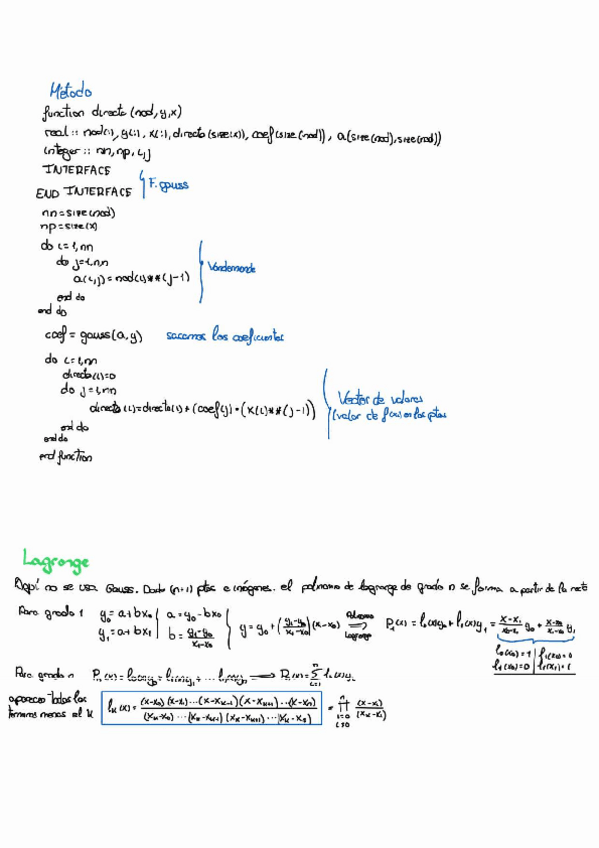 Método
function directo (nod, y, x)
real :: nod(:), y(:), x(:), directo(size(x)), coef(size(nod)), a(size(nod),size(nod))
integer :: nn, np, i, j
INTERFACE
F. gauss
END INTERFACE
nn = size(nod)
np = size(x)
do i=1,nn
do j=1,nn
a(i,j) = nod(i)**(j-1)
Vandermonde
end do
end do
coef = gauss(a,y) sacamos los coeficientes
do i=1,nn
directo(i)=0
do j=1,nn
directo(i)=directo(i)+(coef(j)*(x(i)**(j-1))
Vector de valores
(valor de f(x) en los ptos
end do
end do
end function
Lagrange
Aquí no se usa Gauss. Dados (n+1) ptos e imágenes. el polinomio de lagrange de grado n se forma a partir de la recta
Para grado 1 y₀ = a + bx₀ | a = y₀ - bx₀
y₁ = a + bx₁ | b = (y₁-y₀)/(x₁-x₀)
y = y₀ + ((y₁-y₀)/(x₁-x₀))(x-x₀) Polinomio ⟹ Lagrange P₁(x) = l₀(x)y₀ + l₁(x)y₁ = (x-x₁)/(x₀-x₁) y₀ + (x-x₀)/(x₁-x₀) y₁
l₀(x₀)=1 | l₁(x₀)=0
l₀(x₁)=0 | l₁(x₁)=1
Para grado n
aparecen todos los
terminos menos el K
lₖ(x) = (x-x₀)(x-x₁)...(x-xₖ₋₁)(x-xₖ₊₁)...(x-xₙ) / (xₖ-x₀)...(xₖ-xₖ₋₁)(xₖ-xₖ₊₁)...(xₖ-xₙ)